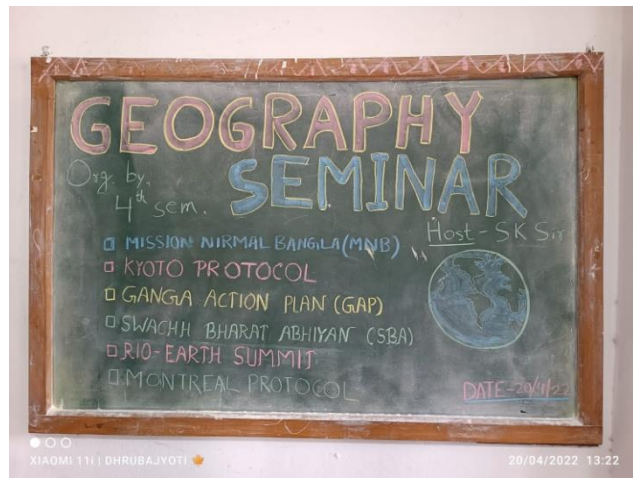 GEOGRAPHY
SEMINAR
Org. by,
4th sem.
Host - SK Sir
MISSION NIRMAL BANGLA (MNB)
KYOTO PROTOCOL
GANGA ACTION PLAN (GAP)
SWACHH BHARAT ABHIYAN (SBA)
RIO-EARTH SUMMIT
MONTREAL PROTOCOL
DATE-20/4/22
XIAOMI 11i | DHRUBAJYOTI
20/04/2022 13:22